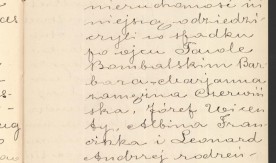 nieruchomość ni
niejsza odziedzi
czyli w spadku
po ojcu Pawle
Bombalskim Bar
bara-Marjanna
zamężna Czerwiń
ska, Józef Wicen
ty, Albina Fran
ciszka i Leonard
Andrzej rodzeń